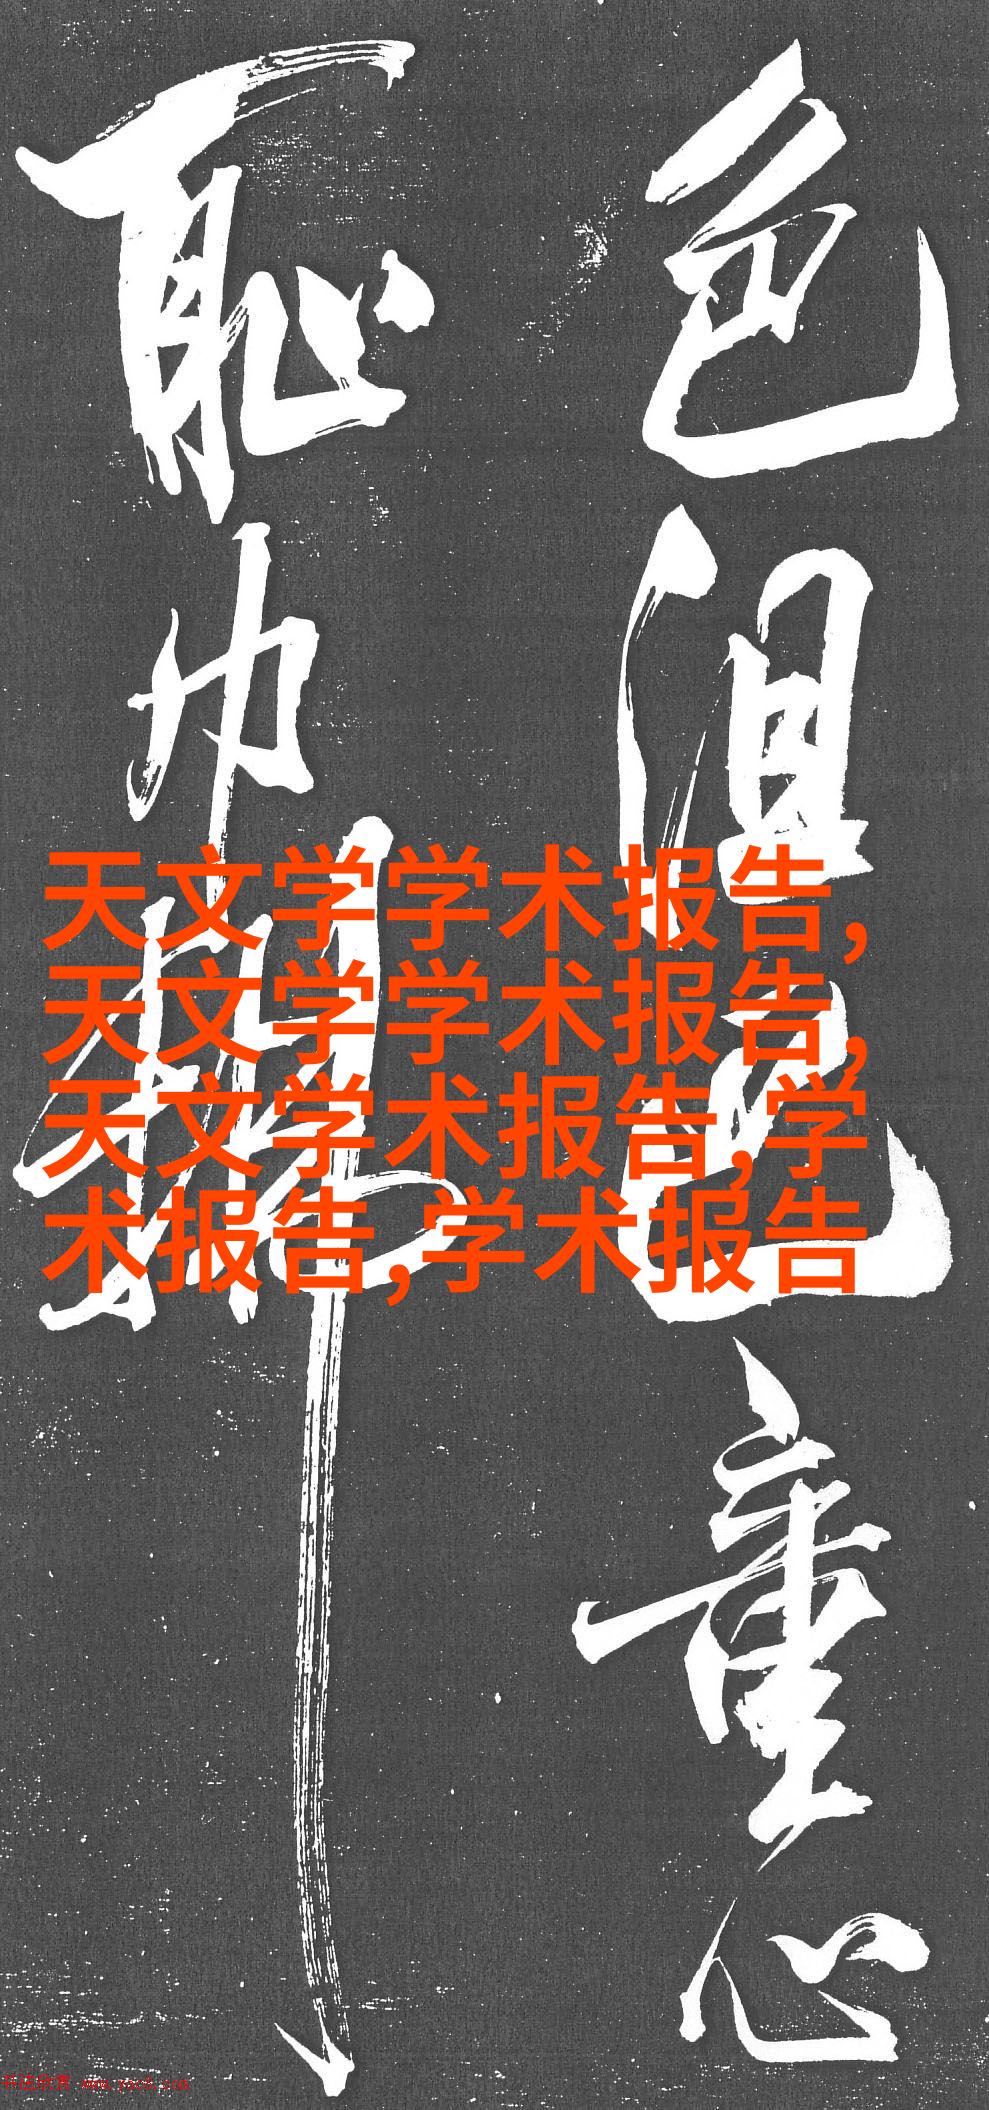 色沮重心
耻巾
天文学学术报告,
天文学学术报告,
天文学术报告,学
术报告,学术报告
书法欣赏 www.yac8.com